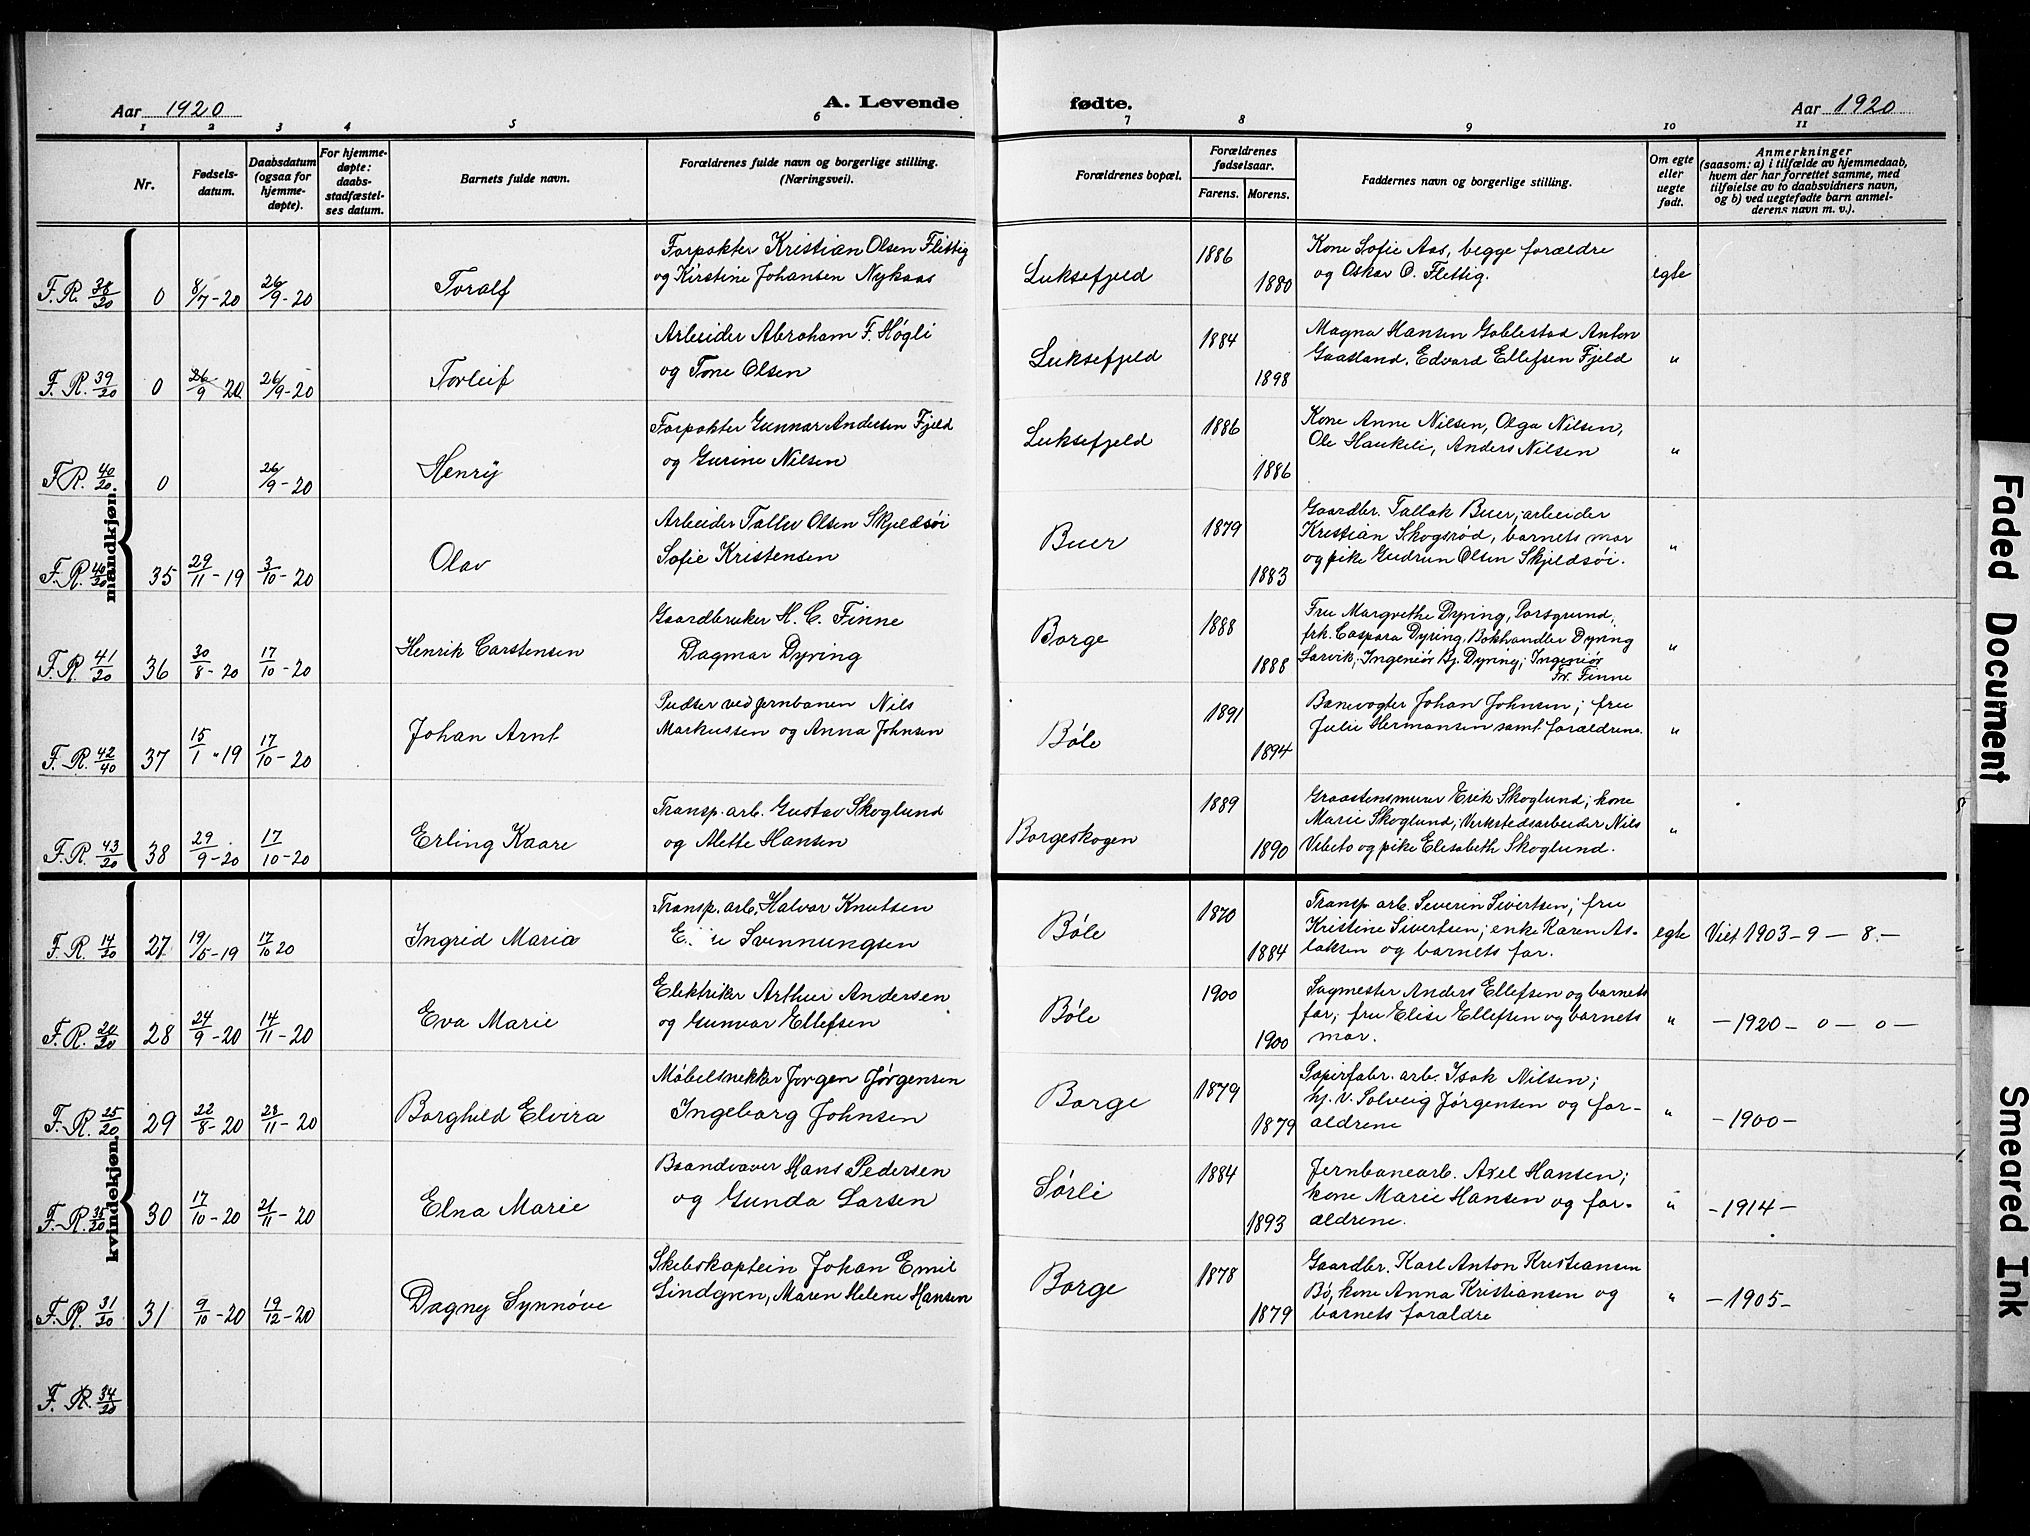 Aar 1920
A. Levende
fødte.
Aar 1920
1 2 3 4 5 6 7 8 9 10 11
Nr.
Fødsels-
datum.
Daabsdatum
(ogsaa for
hjemme-
døpte).
For hjemme-
døpte:
daabs-
stadfæstel-
ses datum.
Barnets fulde navn.
Forældrenes fulde navn og borgerlige stilling.
(Næringsvei).
Forældrenes bopæl.
Forældrenes
fødselsaar.
Farens. Morens.
Faddernes navn og borgerlige stilling.
Om egte
eller
uegte
født.
Anmerkninger
(saasom: a) i tilfælde av hjemmedaab,
hvem der har forrettet samme, med
tilføielse av to daabsvidners navn,
og b) ved uegtefødte barn anmel-
derens navn m. v.).
mandkjøn.
F. R. 38/20 0 8/7-20 26/9-20
Toralf
Forpakter Kristian Olsen Flittig
og Kirstine Johansen Nykaas
Luksefjeld
1886
1880
Kone Sofie Aas, begge forældre
og Oskar O. Flittig.
egte
F. R. 39/20 0 26/9-20 26/9-20
Torleif
Arbeider Abraham F. Høgli
og Tone Olsen
Luksefjeld
1884
1898
Magna Hansen Goblestad Anton
Gaasland, Edvard Ellefsen Fjeld
"
F. R. 40/20 0 26/9-20
Henry
Forpakter Gunnar Andersen Fjeld
og Gurine Nilsen
Luksefjeld
1886
1886
Kone Anne Nilsen, Olga Nilsen,
Ole Haukeli, Anders Nilsen
"
F. R. 40/20 35 29/11-19 3/10-20
Olav
Arbeider Tallev Olsen Skjeldsøi
Sofie Kristensen
Buer
1879
1883
Gaardbr. Tallak Buer, arbeider
Kristian Skogsrød, barnets mor
og pike Gudrun Olsen Skjeldsøi.
"
F. R. 41/20 36 30/8-20 17/10-20
Henrik Carstensen
Gaardbruker H. C. Finne
Dagmar Dyring
Borge
1888
1888
Fru Margrethe Dyring, Porsgrund,
frk. Caspara Dyring, Bokhandler Dyring
Larvik, Ingeniør Bj. Dyring, Ingeniør
Fr. Finne
"
F. R. 42/40 37 15/1-19 17/10-20
Johan Arnt
Pudser ved jernbanen Nils
Markussen og Anna Johnsen
Bøle
1891
1894
Banevogter Johan Johnsen; fru
Julie Hermansen samt forældrene.
"
F. R. 43/20 38 29/9-20 17/10-20
Erling Kaare
Transp. arb. Gustav Skoglund
og Alette Hansen
Borgeskogen
1889
1890
Graastensmurer Erik Skoglund; kone
Marie Skoglund; Verkstedsarbeider Nils
Vibeto og pike Elisabeth Skoglund.
"
kvindekjøn.
F. R. 14/20 27 19/5-19 17/10 20
Ingrid Maria
Transp. arb. Halvor Knutsen
Svennungsen
Bøle
1870
1884
Transp. arb. Severin Sivertsen; fru
Kristine Sivertsen; enke Karen As-
laksen og barnets far.
egte
Viet 1903-9-8.-
F. R. 24/20 28 24/9-20 14/11-20
Eva Marie
Elektriker Arthur Andersen
og Gunvor Ellefsen
Bøle
1900
1900
Sagmester Anders Ellefsen og barnets
far; fru Elise Ellefsen og barnets
mor.
"
-1920-0-0-
F. R. 25/20 29 22/8-20 28/11-20
Borghild Elvira
Møbelsnekker Jørgen Jørgensen
Ingeborg Johnsen
Borge
1879
1879
Papirfabr. arb. Isak Nilsen;
hj. v. Solveig Jørgensen og for-
ældrene
"
-1900-
F. R. 35/20 30 17/10-20 21/11-20
Elna Marie
Hans Pedersen
og Gunda Larsen
Sørli
1884
1893
Jernbanearb. Axel Hansen;
kone Marie Hansen og for-
ældrene.
"
-1914-
F. R. 31/20 31 9/10-20 19/12-20
Dagny Synnøve
Skibskaptein Johan Emil
Lindgren, Maren Helene Hansen
Borge
1878
1879
Gaardbr. Karl Anton Kristiansen
Bø, kone Anna Kristiansen og
barnets forældre
"
-1905-
F. R. 34/20
Faded Document
Smeared Ink